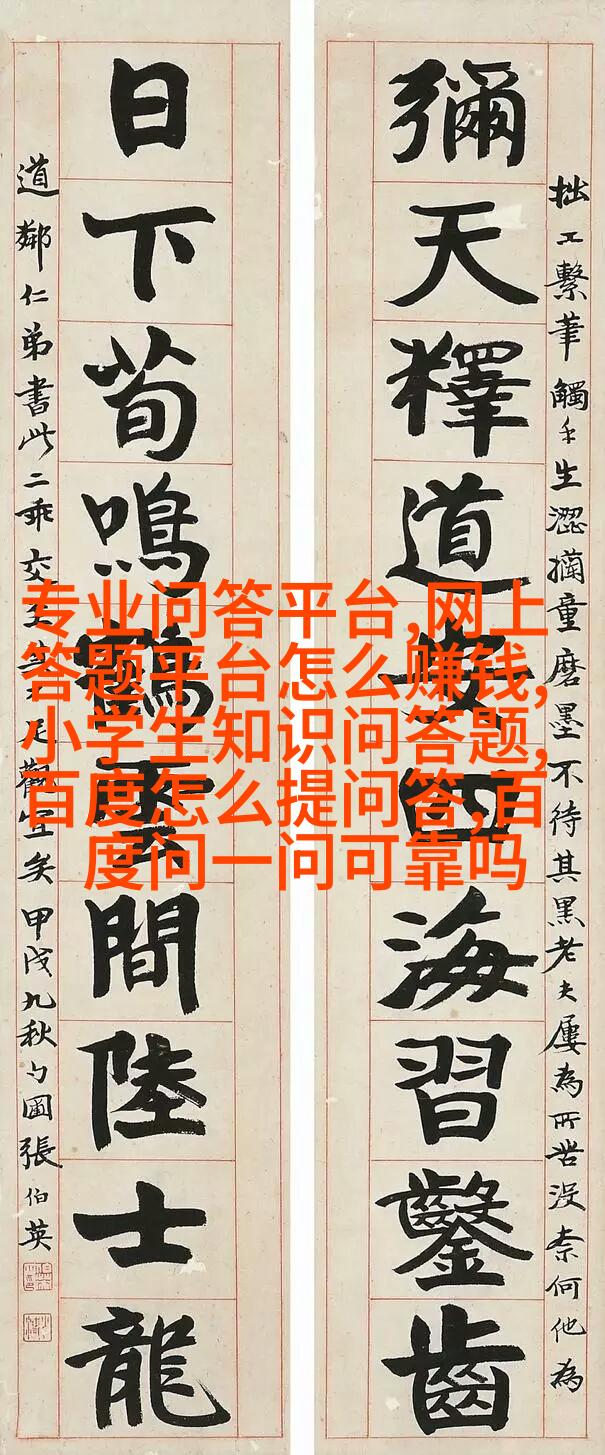 拙工繫筆觸手生澀童磨墨不待其黑老夫屢為所苦沒柰何他為
彌天釋道安四海習鑿齒
日下荀鳴鶴雲間陸士龍
道鄰仁弟書此二乖交至足觀宜矣甲戌九秋勺圃張伯英
专业问答平台,网上
答题平台怎么赚钱,
小学生知识问答题,
百度怎么提问答,百
度问一问可靠吗